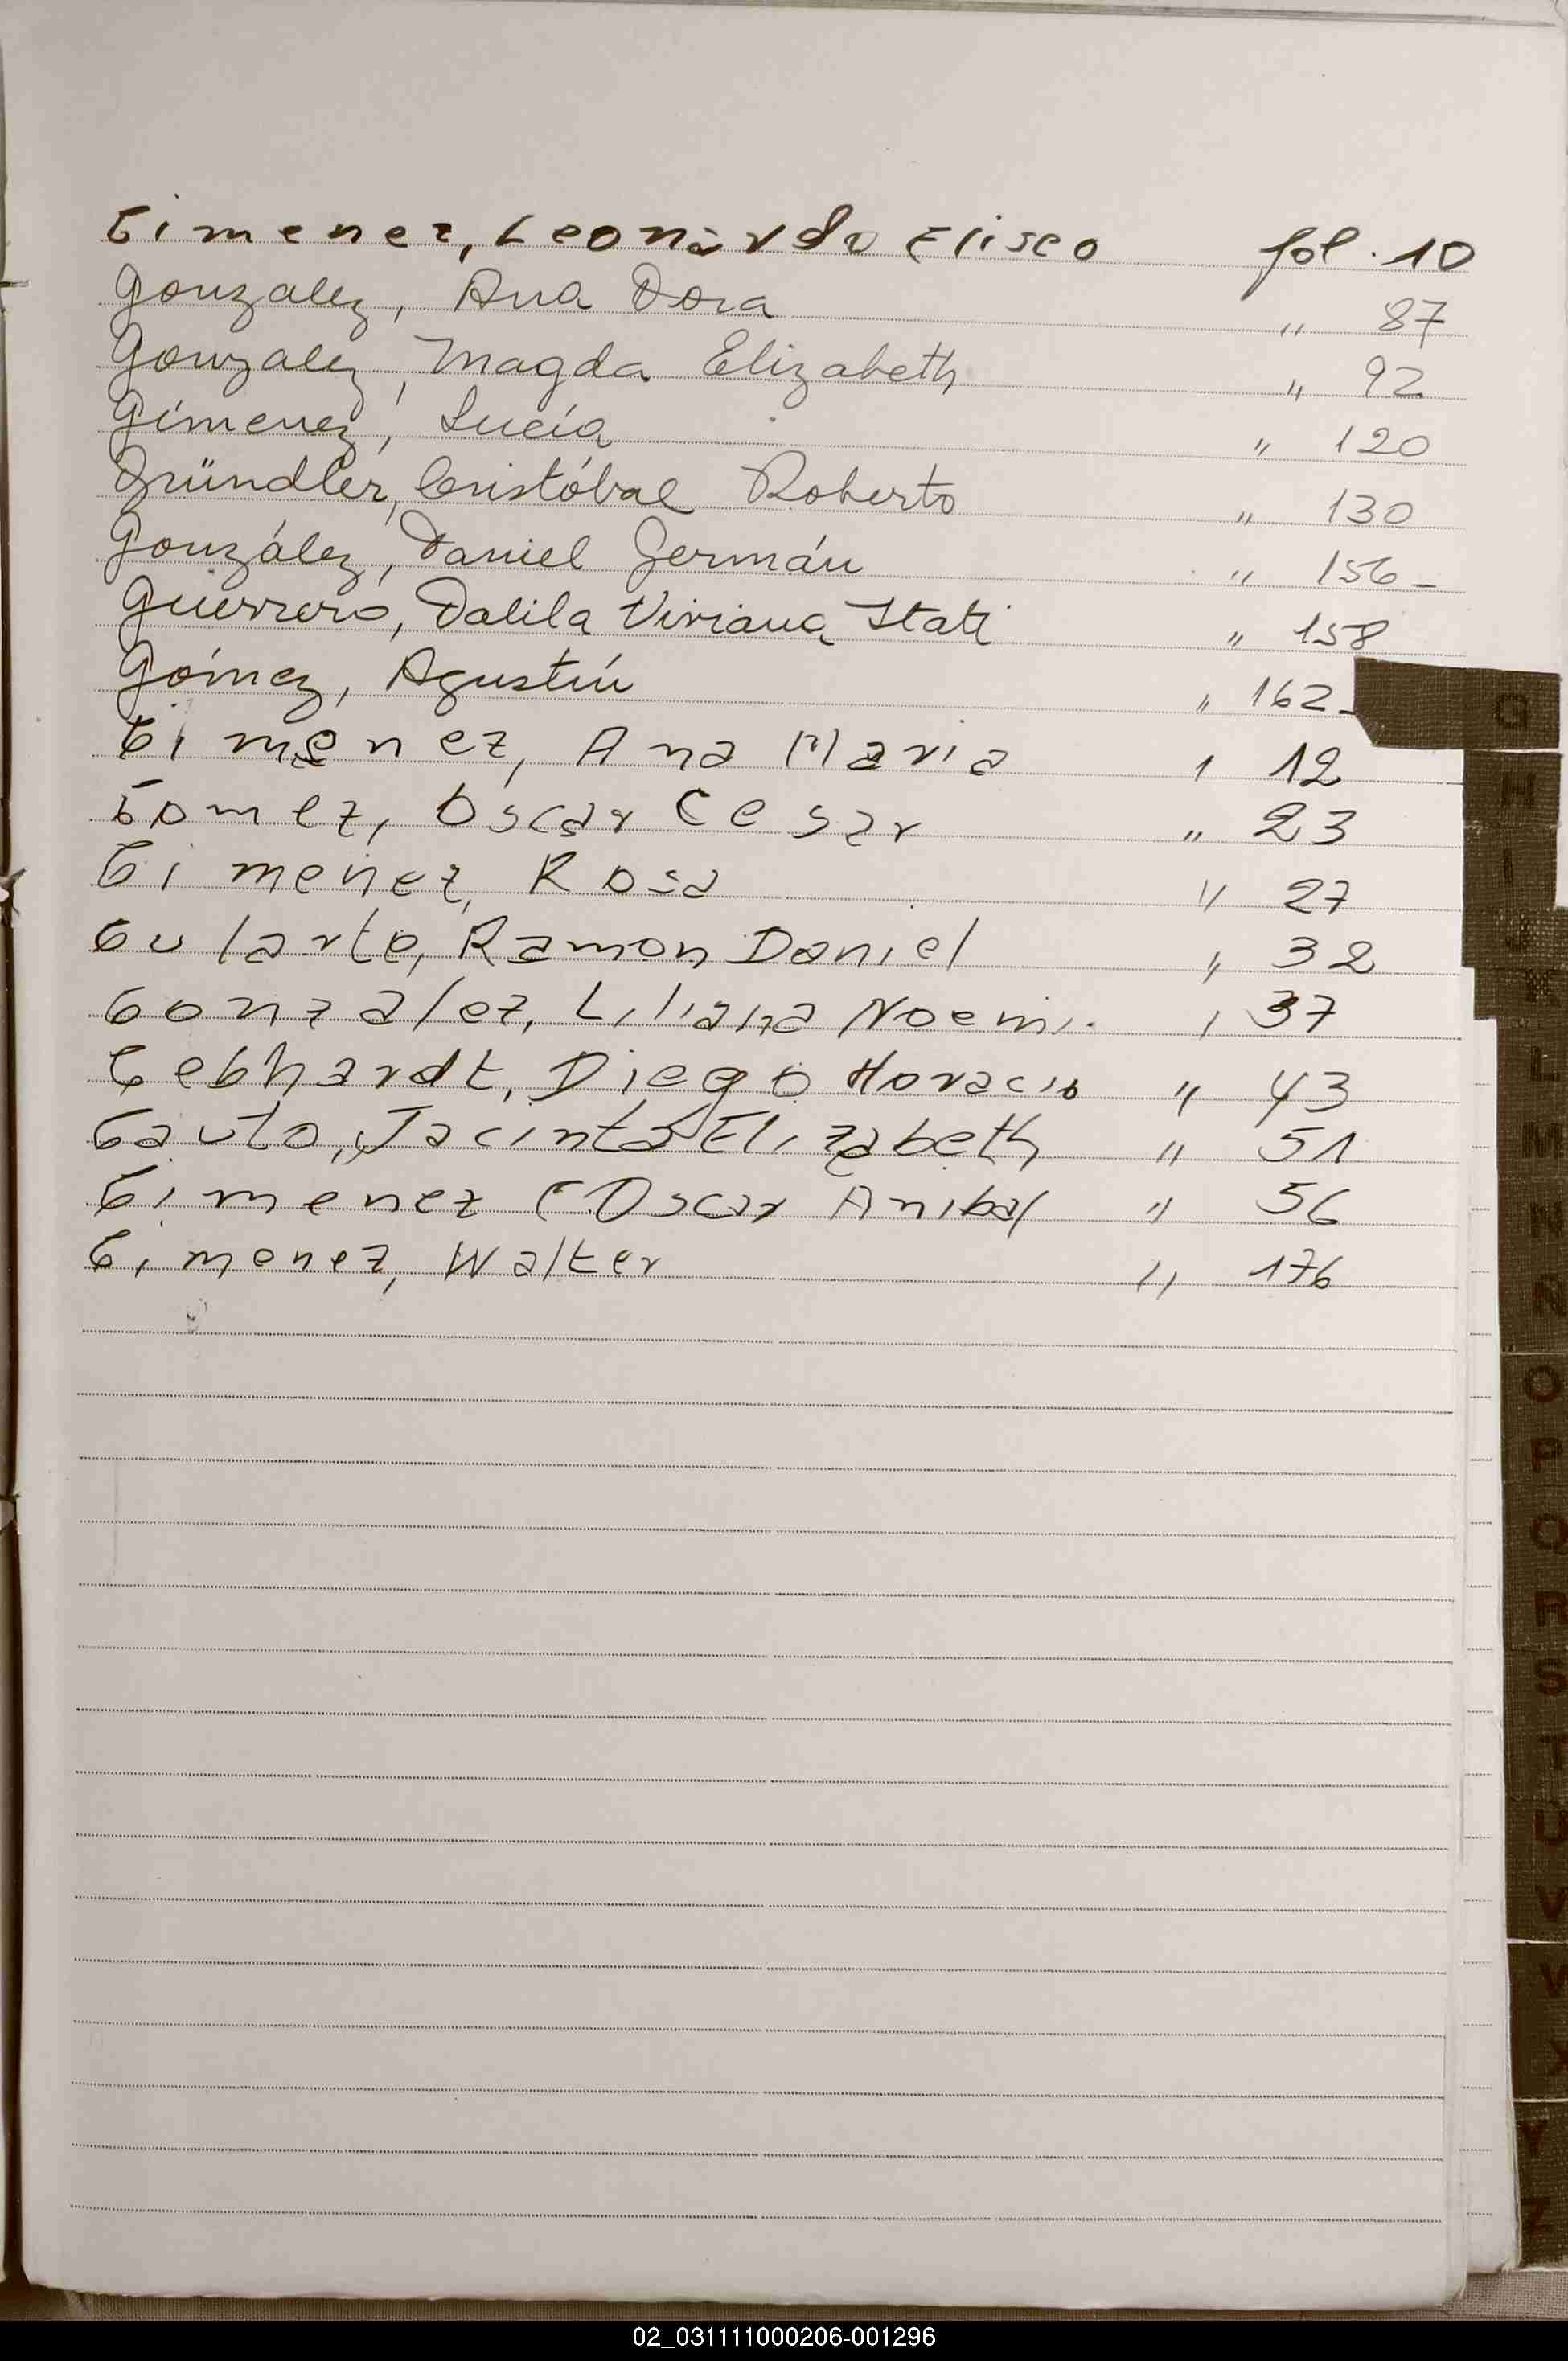 Gimenez, Leonardo Eliseo fol. 10
Gonzalez, Ana Dora " 87
Gonzalez, Magda Elizabeth " 92
Gimenez, Lucía " 120
Gründler, Cristóbal Roberto " 130
González, Daniel Germán " 156-
Guerrero, Dalila Viviana Itatí " 158
Gómez, Agustín " 162-
Gimenez, Ana Maria " 12
Gomez, Oscar Cesar " 23
Gimenez, Rosa " 27
Gularte, Ramon Daniel " 32
Gonzalez, Liliana Noemi. " 37
Gebhardt, Diego Horacio " 43
Gauto, Jacinta Elizabeth " 51
Gimenez Oscar Anibal " 56
Gimenez, Walter " 176
G
H
I
J
K
L
M
N
Ñ
O
P
Q
R
S
T
U
V
W
X
Y
Z
02_031111000206-001296